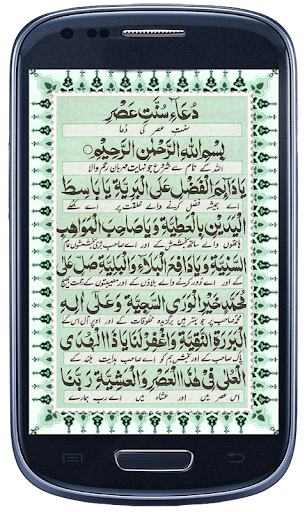 دُعَآءِ سُنَّتِ عَصْرِ
سنت عصر کی دعا
بِسْمِ اللهِ الرَّحْمٰنِ الرَّحِيْمِ
اللہ کے نام سے شروع جو نہایت مہربان رحم والا
يَا دَآئِمَ الْفَضْلِ عَلَى الْبَرِيَّةِ يَا بَاسِطَ
اے ہمیشہ فضل کرنے والے خلقت پر اے کھلے
الْيَدَيْنِ بِالْعَطِيَّةِ وَيَا صَاحِبَ الْمَوَاهِبِ
ہاتھوں والے ساتھ بخشش کے اور اے صاحب بڑی بخششوں
السَّنِيَّةِ وَيَا دَافِعَ الْبَلَآءِ وَالْبَلِيَّةِ صَلِّ عَلٰى
کے اور اے دور کرنے والے بلاؤں کے اور مصیبتوں کے
مُحَمَّدٍ خَيْرِ الْوَرٰى السَّجِيَّةِ وَعَلٰى اٰلِهِ
محمد صاحب پر جو بہتر ہیں برگزیدہ مخلوقات کے اور اوپر آل اس کے
الْبَرَرَةِ النَّقِيَّةِ وَاغْفِرْلَنَا يَا ذَا الْهُدٰى
پاک صاحب کے اور بخش ہم کو اے صاحب ہدایت بلند کے
الْعُلٰى فِيْ هٰذَا الْعَصْرِ وَالْعَشِيَّةِ رَبَّنَا
اس عصر میں اور عشاء میں اے رب ہمارے